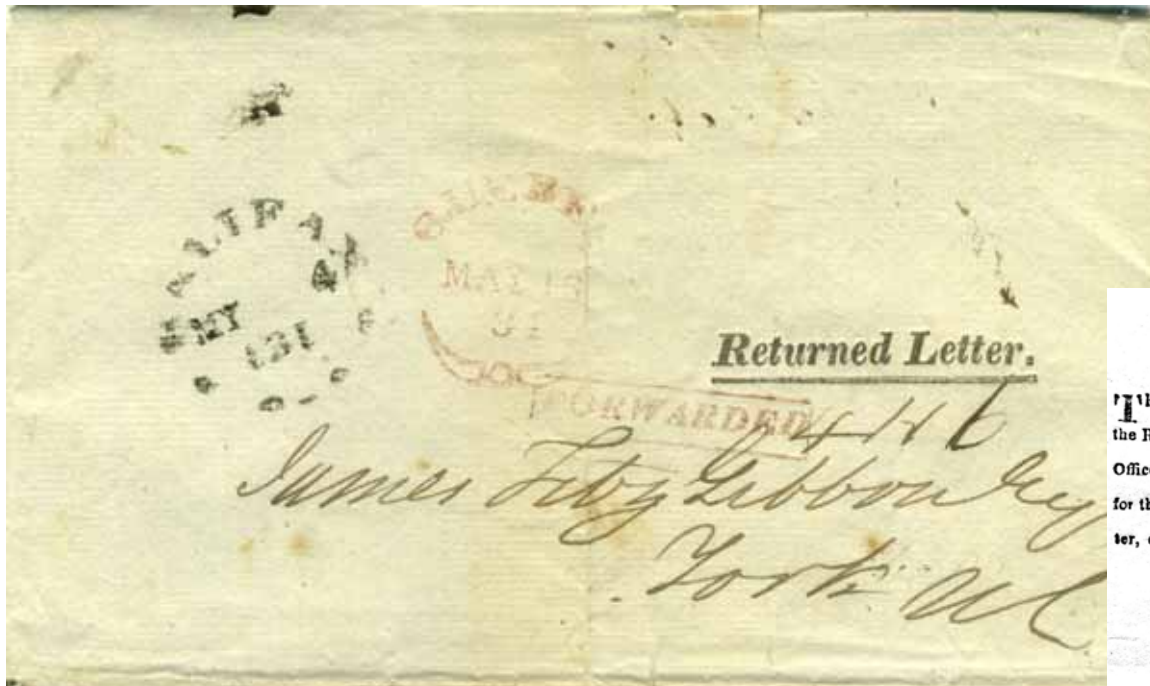 HALIFAX
MY 4
1831
QUEBEC
MAY
31
Returned Letter.
FORWARDED
James FitzGibbon Esq
York UC
the R
Office
for th
ter,